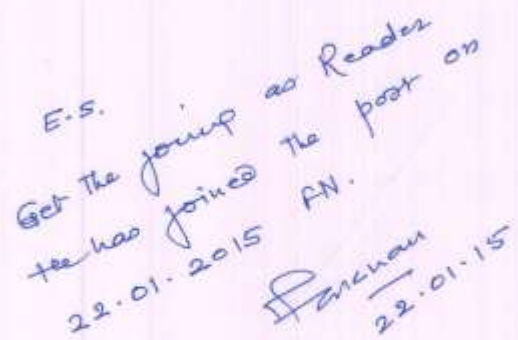 E.S.
Get the joining as Reader
He has joined the post on
22.01.2015 FN.
22.01.15